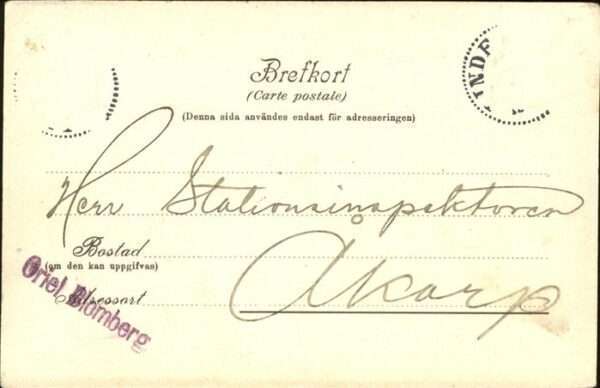 Brefkort
(Carte postale)
(Denna sida användes endast för adresseringen)
INDE
Herr Stationsinspektoren
Bostad
(om den kan uppgifvas)
Åkarp
Adressort
Oriel Blomberg